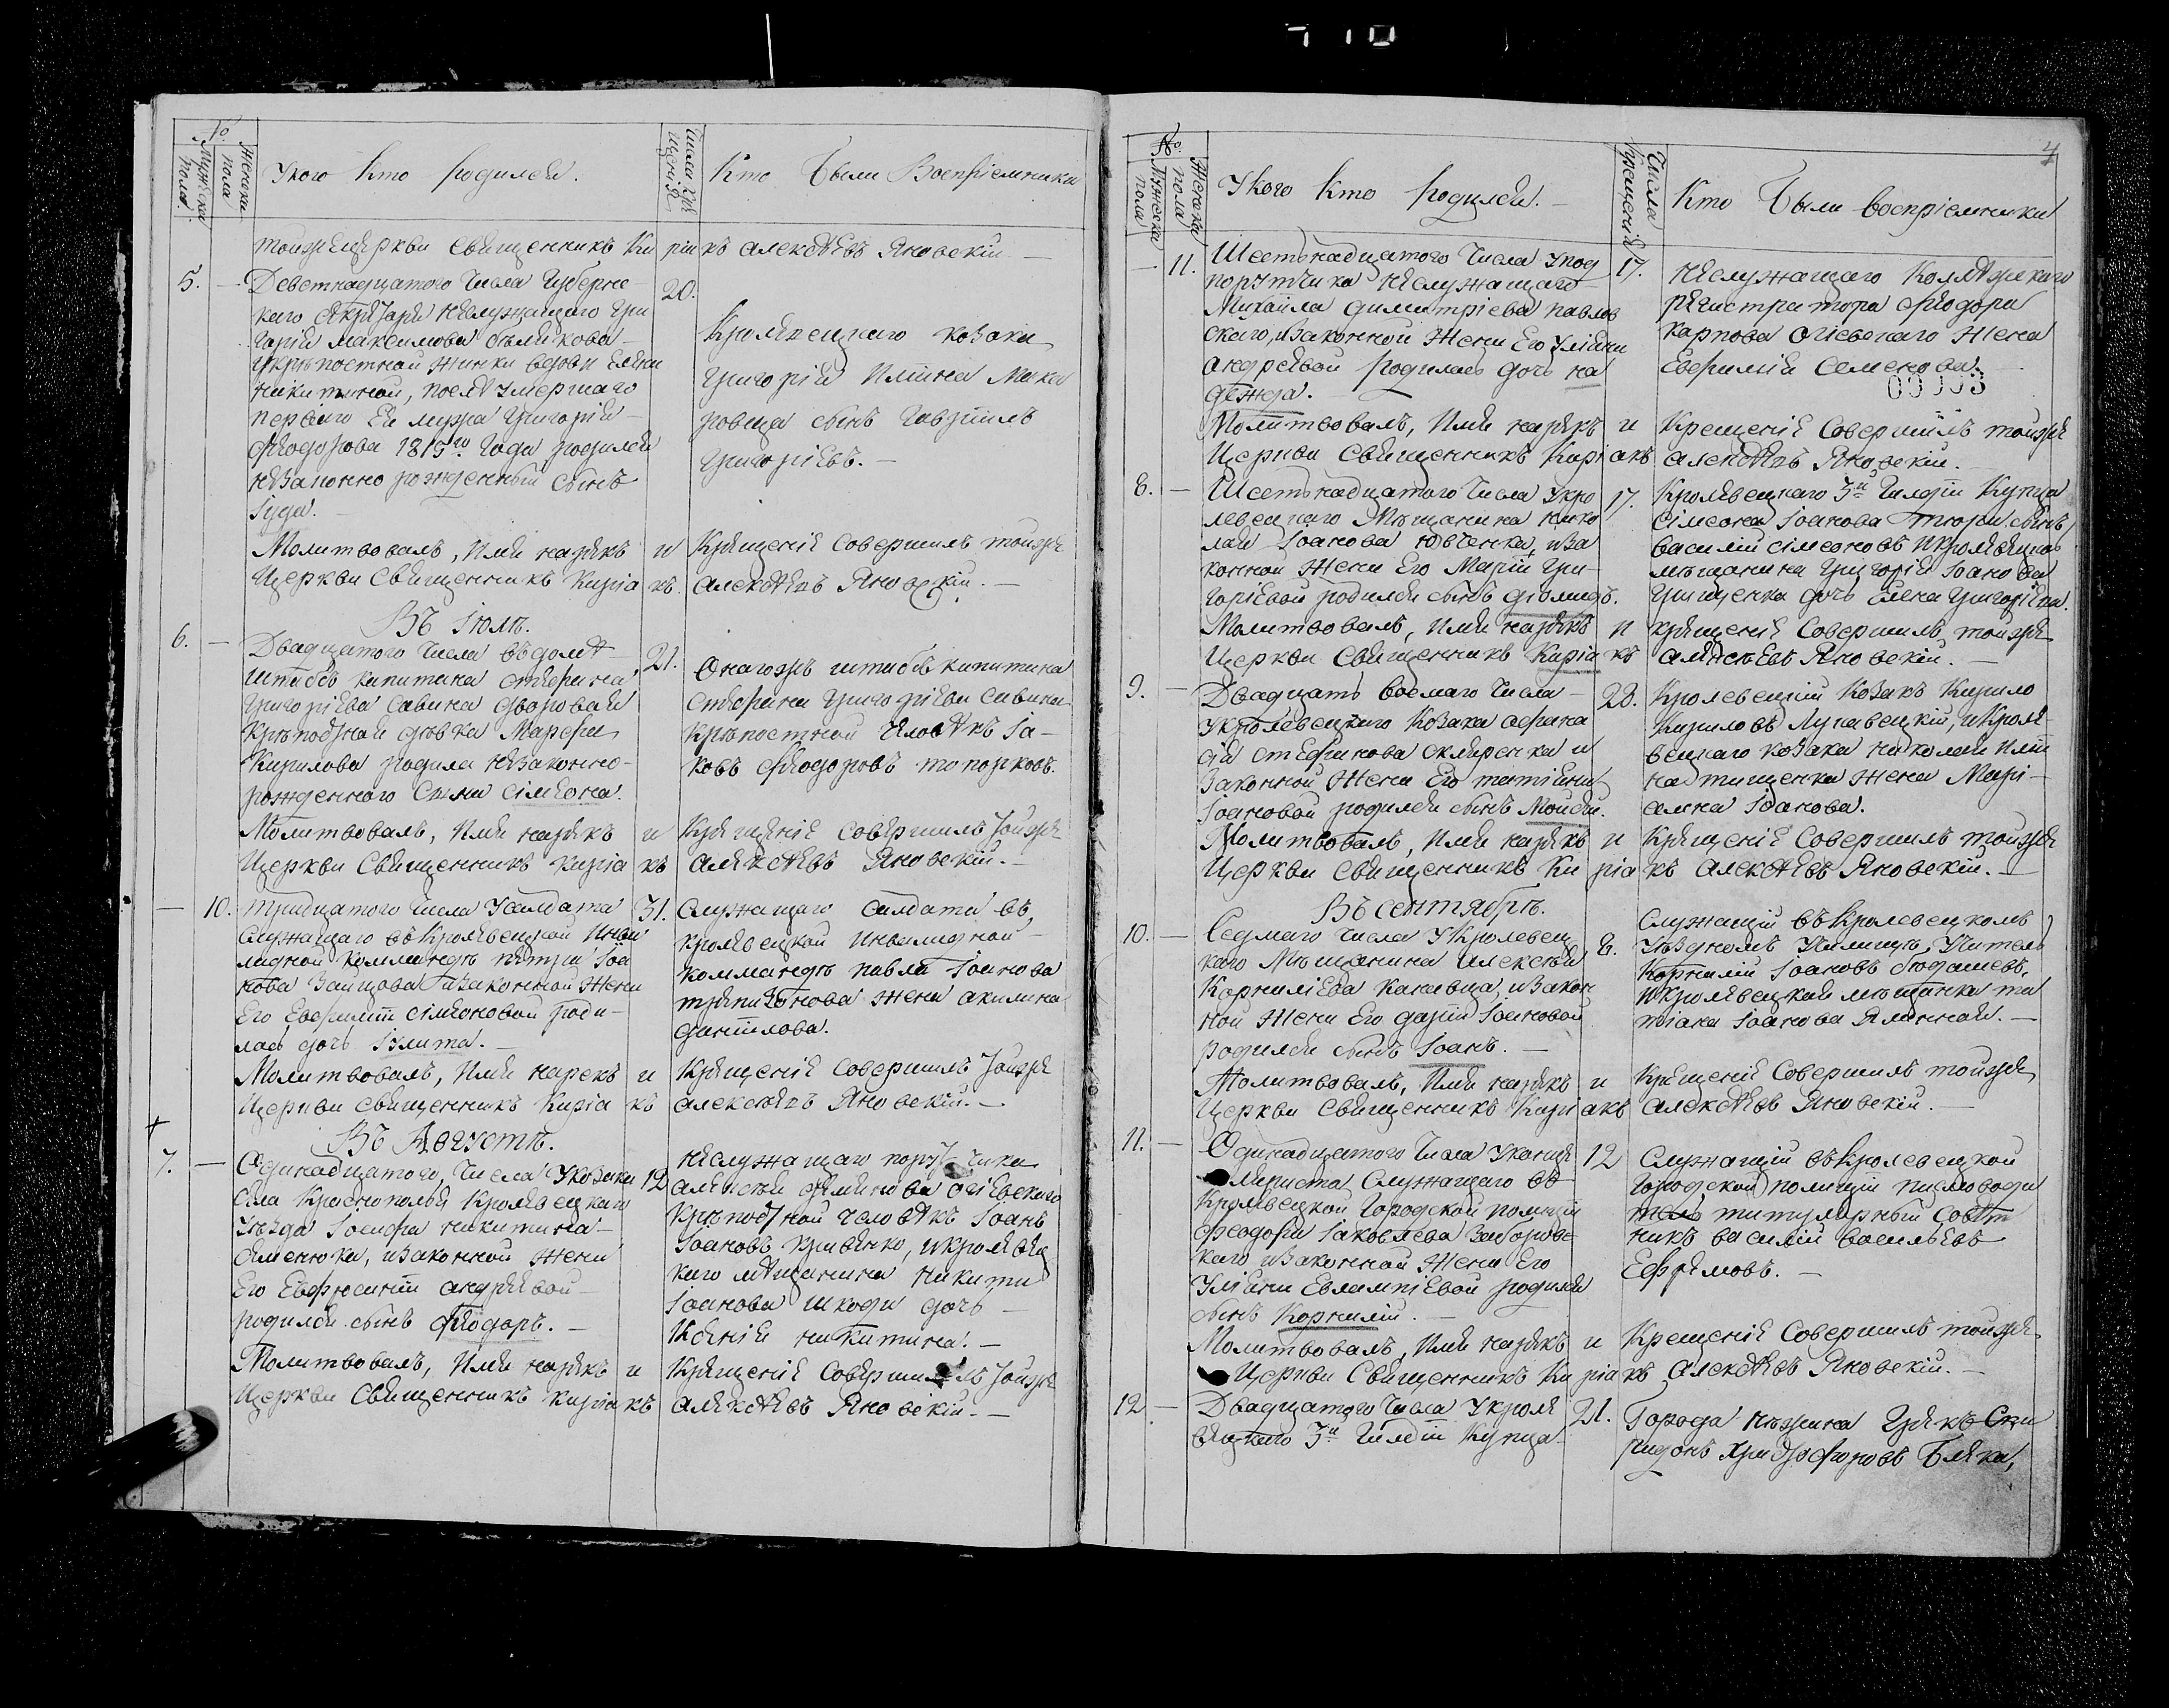 №
Мужеска пола
Женска пола
У кого кто родился.
Числа крещенія
Кто были Воспріемники
тоижецеркви Священникъ Киріакъ Алексѣевъ Яновскій.
5. Деветнадцатого Числа Губернс-
каго секретаря неслужащаго Гри
горія Максимова
укрѣпостной жинки вдови Елени
Никитиной, после умершаго
первого Ея мужа Григорія
Феодорова 1815го Года родился
незаконно рожденный сынъ
Іуда.
20.
Кролевецкаго козака
Григорія Иліина Мака
ровца сынъ Гавріилъ
Григоріевъ.
Молитвовалъ, Имя нарекъ и Крещеніе Совершилъ тоижъ
Церкви Священникъ Киріакъ Алексѣевъ Яновскій.
Въ Іюлѣ.
6. Двадцатого Числа въ домѣ
Штабсъ капитана Стефана
Григоріева Савича дворовая
крѣпостная дѣвка Марфа
Кирилова родила незаконно-
рожденного Сына Сімеона.
21.
Оногожъ штабсъ капитана
Стефана Григоріева Савича
крѣпостной человѣкъ Іа-
ковъ Феодоровъ Топорковъ.
Молитвовалъ, Имя нарекъ и Крещеніе Совершилъ тоижъ
Церкви Священникъ Киріакъ Алексѣевъ Яновскій.
10. Тридцатого Числа У Салдата
Служащаго въ Кролевецкой Инва
лидной коммандѣ Петра Іоа
нова Зайцова и Законной Жени
Его Евфиміи Сімеоновой роди-
лась дочь Іулита.
31.
Служащаго Салдата въ
Кролевецкой Инвалидной
коммандѣ Павла Іоанова
жена Акилина
Даніилова.
Молитвовалъ, Имя нарекъ и Крещеніе Совершилъ тоижъ
Церкви Священникъ Киріакъ Алексѣевъ Яновскій.
Въ Августѣ.
7. Одинадцатого Числа У Козака
Села Краснополья Кролевецкаго
Уезда Іосифа Никитина
Яменюка, и Законной жени
Его Евфросиніи Андреевой
родился сынъ Феодоръ.
12
Неслужащаго поручика
Алексѣя Огіевскаго
крѣпостной человѣкъ Іоанъ
Іоановъ Кривенко, и Кролевец
каго мѣщанина Никити
Іоанова Шкоди дочь
Ксенія Никитина.
Молитвовалъ, Имя нарекъ и Крещеніе Совершилъ тоижъ
Церкви Священникъ Киріакъ Алексѣевъ Яновскій.
4
№
Мужеска пола
Женска пола
У кого кто родился.
Числа крещенія
Кто были воспріемники
11. Шестьнадцатого Числа У под
порутчика неслужащаго
Михаила Димитріева Павлов
скаго, и законной Жени Его Уліяни
Андреевой родилась дочь На
дежда.
17.
Неслужащаго Колѣжскаго
регистратора Феодора
Карпова Огіевскаго Жена
Евфимія Семенова.
Молитвовалъ, Имя нарекъ и Крещеніе Совершилъ тоижъ
Церкви Священникъ Киріакъ Алексѣевъ Яновскій.
8. Шестьнадцатого Числа У кро
левецкаго Мѣщанина Нико
лая Іоанова Ювченка, и за
конной Жени Его Маріи Гри-
горіевой родился сынъ Діомидъ.
17.
Кролевецкаго 3й Гилдіи Купца
Сімеона Іоанова сынъ
Василій Сімеоновъ и Кролевецкаго
мѣщанина Григорія Іоанова
Грищенка дочь Елена Григоріева.
Молитвовалъ, Имя нарекъ и Крещеніе Совершилъ тоижъ
Церкви Священникъ Киріакъ Алексѣевъ Яновскій.
9. Двадцать восмаго Числа
У Кролевецкаго Козака Афана
сія Стефанова Скляренка и
Законной Жени Его Татіяни
Іоановой родился сынъ Моисей.
28.
Кролевецкій Козакъ Кирило
Кириловъ Лупавецкій, и Кроле-
вецкаго козака Николая Илли
на Тищенка жена Марі-
амна Іоанова.
Молитвовалъ, Имя нарекъ и Крещеніе Совершилъ тоижъ
Церкви Священникъ Киріакъ Алексѣевъ Яновскій.
Въ Сентябрѣ.
10. Седмаго Числа У Кролевец
каго Мѣщанина Алексѣя
Корниліева Каневца, и Закон
ной Жени Его Даріи Іоановой
родился сынъ Іоанъ.
8.
Служащій въ Кролевецкомъ
Уѣздномъ Училищѣ, Учитель
Корнилій Іоановъ
и Кролевецкая мѣщанка Та
тіана Іоанова
Молитвовалъ, Имя нарекъ и Крещеніе Совершилъ тоижъ
Церкви Священникъ Киріакъ Алексѣевъ Яновскій.
11. Одинадцатого Числа У канце
ляриста Служащаго въ
Кролевецкой Городской полиціи
Феодора Іаковлева Заборовс-
каго и Законной Жени Его
Уліяни Евлампіевой родился
сынъ Корнилій.
12
Служащій въ Кролевецкой
Городской полиціи писмоводи
тель титулярный Совѣт
никъ Василій Васильевъ
Ефремовъ.
Молитвовалъ, Имя нарекъ и Крещеніе Совершилъ тоижъ
Церкви Священникъ Киріакъ Алексѣевъ Яновскій.
12 Двадцатого Числа У Кроле
вецкаго 3й Гилдіи Купца
21.
Города Нѣжина Грекъ Спи
ридонъ Христофоровъ Бляка,